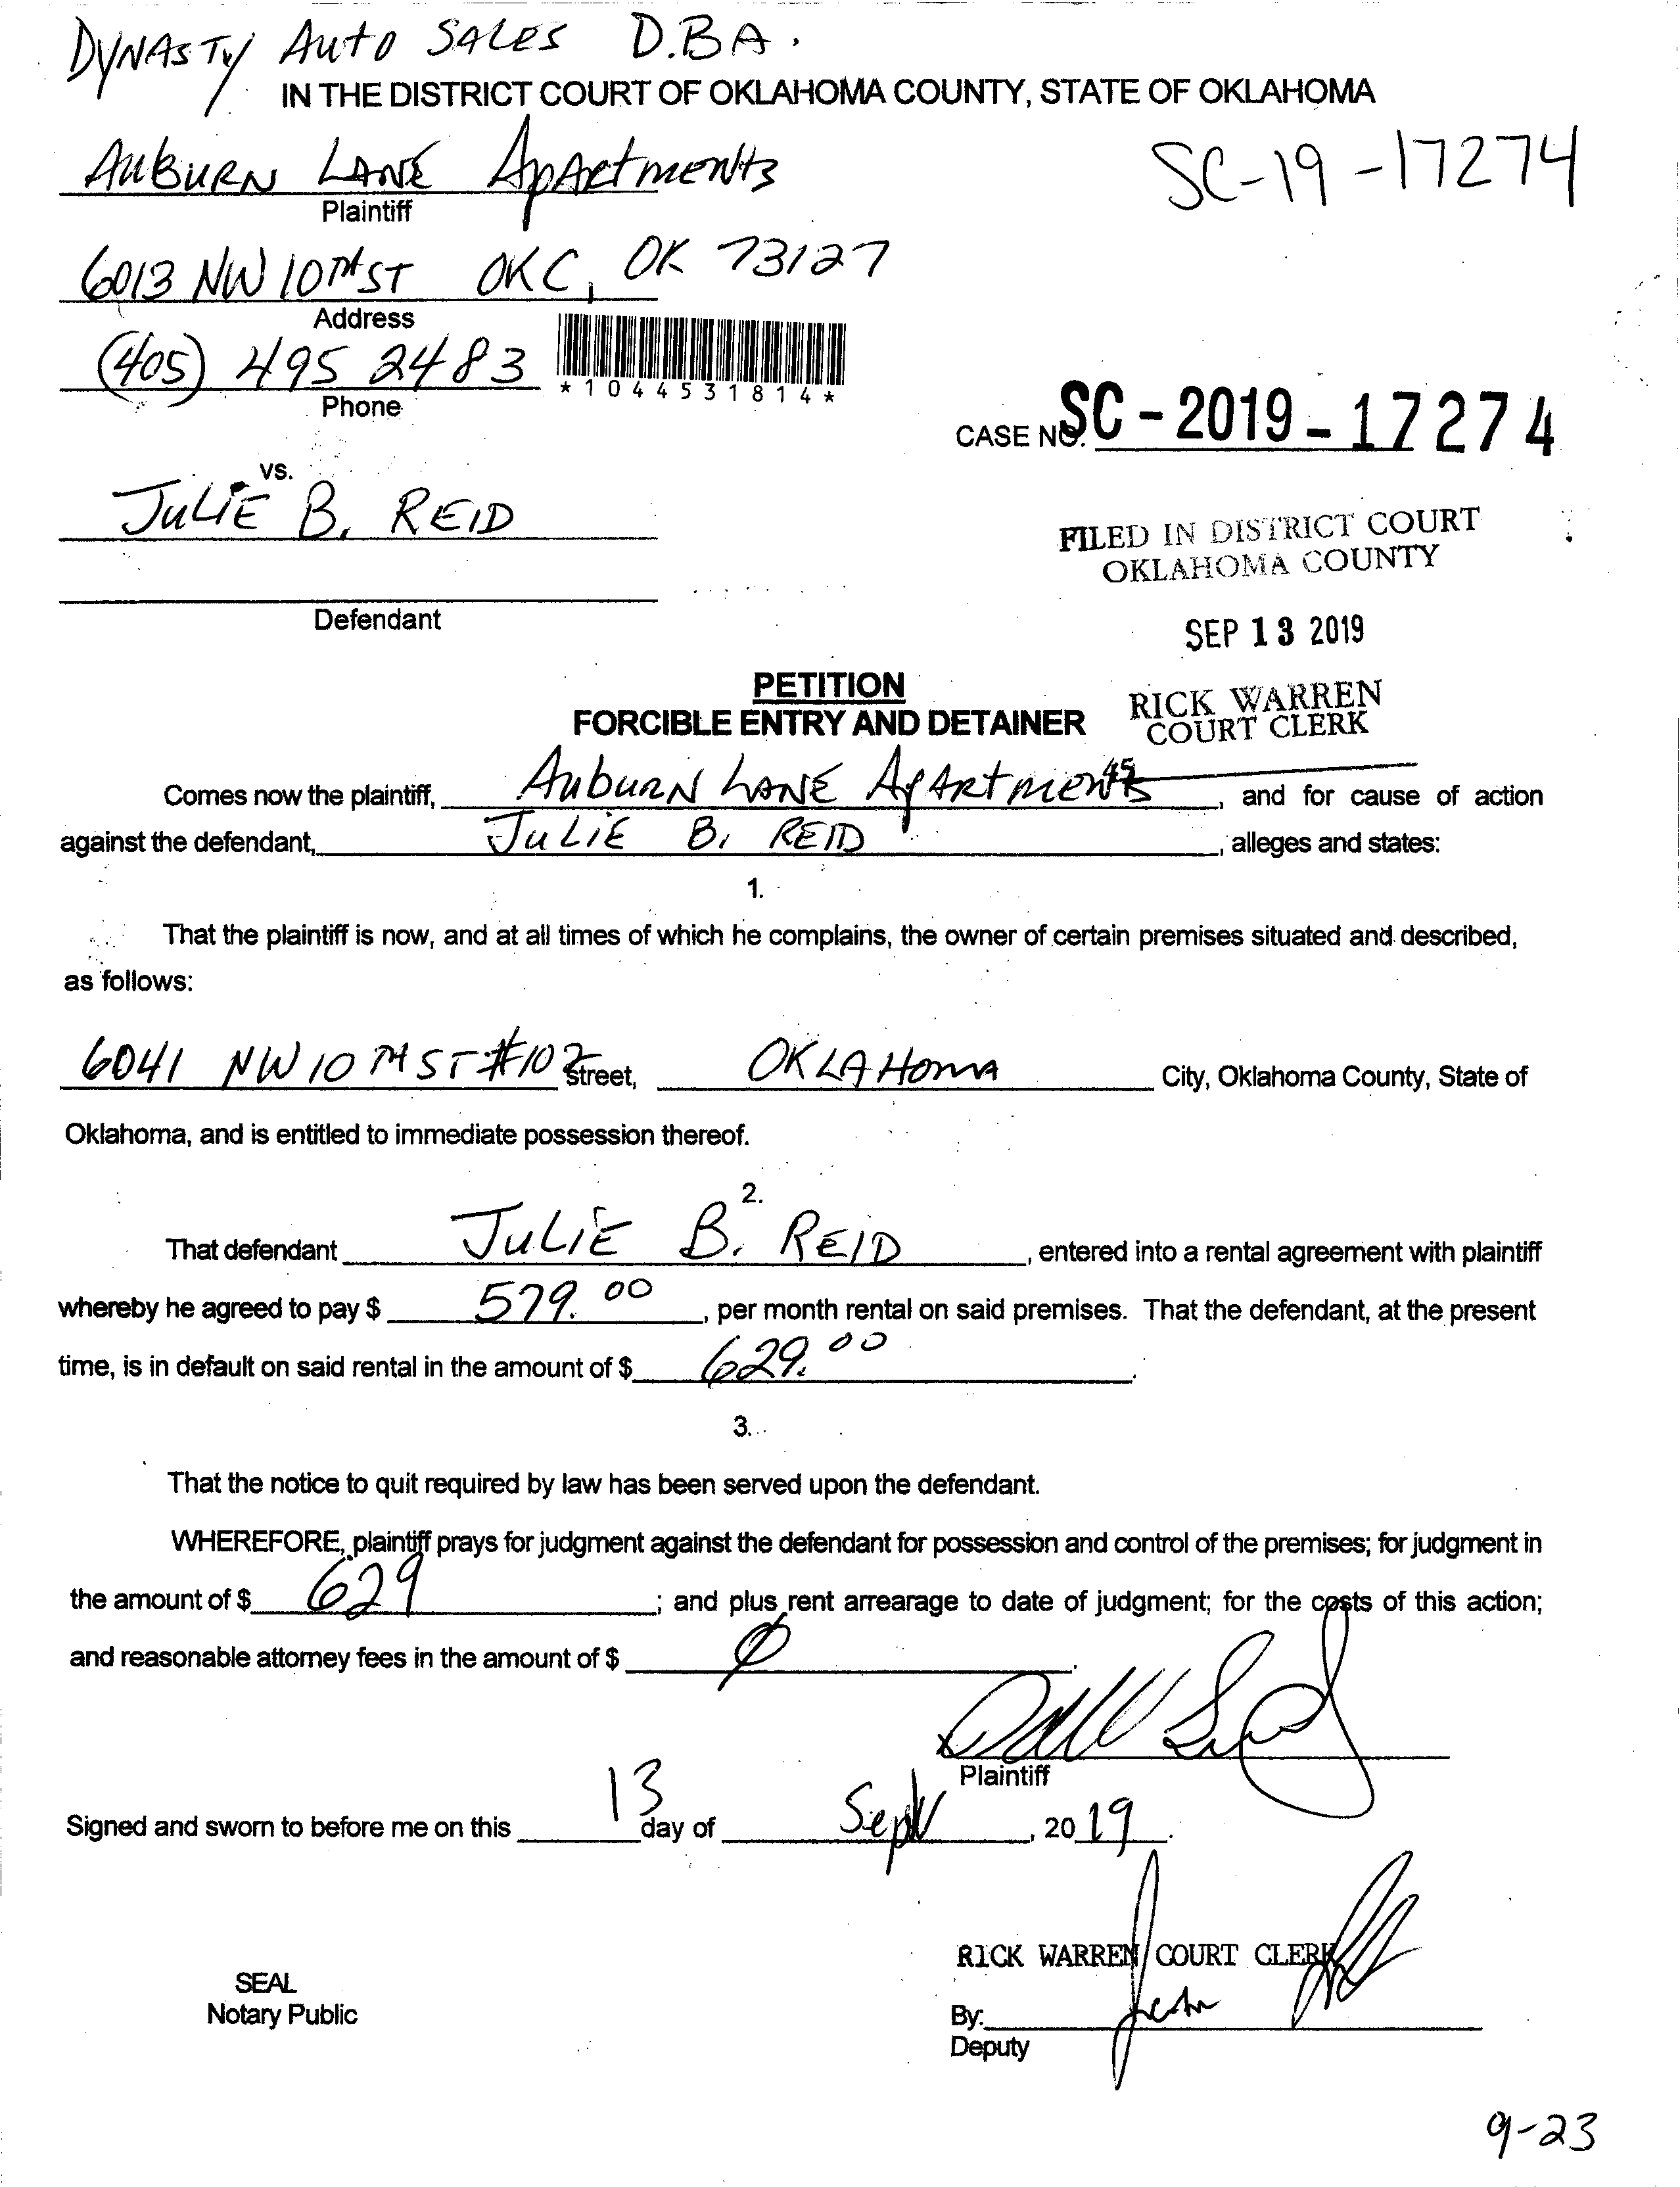 DYNASTY AUTO SALES D.B.A.
IN THE DISTRICT COURT OF OKLAHOMA COUNTY, STATE OF OKLAHOMA
AUBURN LANE APARTMENTS
SC-19-17274
Plaintiff
6013 NW 10TH ST OKC, OK 73127
Address
(405) 495 2483
*1044531814*
Phone
CASE NO. SC-2019-17274
vs.
JULIE B. REID
FILED IN DISTRICT COURT
OKLAHOMA COUNTY
Defendant
SEP 13 2019
PETITION
FORCIBLE ENTRY AND DETAINER
RICK WARREN
COURT CLERK
45
Comes now the plaintiff, AUBURN LANE APARTMENTS, and for cause of action
against the defendant, JULIE B. REID, alleges and states:
1.
That the plaintiff is now, and at all times of which he complains, the owner of certain premises situated and described,
as follows:
6041 NW 10TH ST #102 Street, OKLAHOMA City, Oklahoma County, State of
Oklahoma, and is entitled to immediate possession thereof.
2.
That defendant JULIE B. REID, entered into a rental agreement with plaintiff
whereby he agreed to pay $ 579.00, per month rental on said premises. That the defendant, at the present
time, is in default on said rental in the amount of $ 629.00.
3.
That the notice to quit required by law has been served upon the defendant.
WHEREFORE, plaintiff prays for judgment against the defendant for possession and control of the premises; for judgment in
the amount of $ 629; and plus rent arrearage to date of judgment; for the costs of this action;
and reasonable attorney fees in the amount of $ Ø.
Plaintiff
Signed and sworn to before me on this 13 day of Sept, 2019.
RICK WARREN COURT CLERK
SEAL
Notary Public
By:
Deputy
9-23